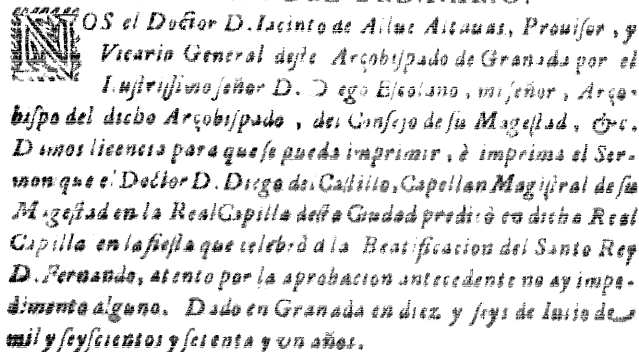 NOS el Doctor D. Iacinto de Ailue Altauas, Prouisor, y
Vicario General deste Arçobispado de Granada por el
Ilustrissimo señor D. Diego Escolano, mi señor, Arço-
bispo del dicho Arçobispado, del Consejo de su Magestad, &c.
Damos licencia para que se pueda imprimir, è imprima el Ser-
mon que el Doctor D. Diego del Castillo, Capellan Magistral de su
Magestad en la Real Capilla desta Ciudad predicò en dicha Real
Capilla en la fiesta que celebrò a la Beatificacion del Santo Rey
D. Fernando, atento por la aprobacion antecedente no ay impe-
dimento alguno. Dado en Granada en diez y seys de Iulio de
mil y seyscientos y setenta y vn años.